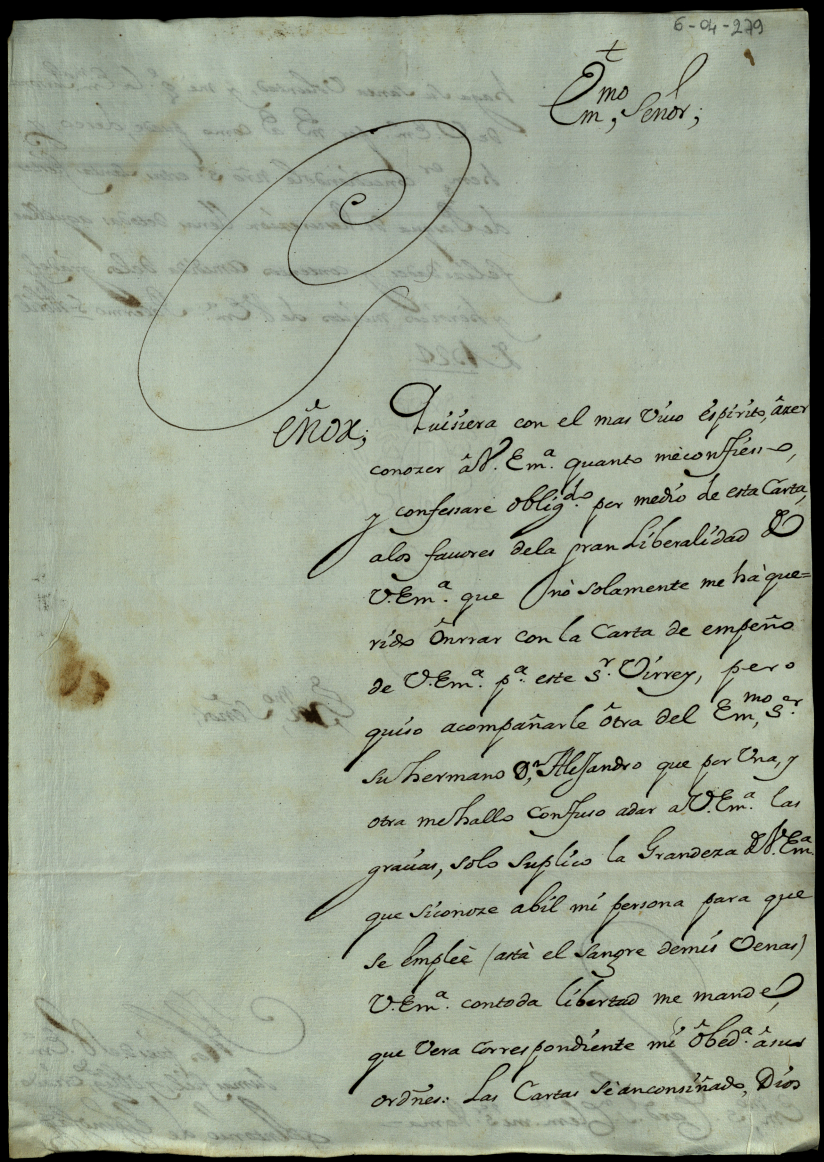 6-04-279
✝
Em.mo Señor;
eñor; Quisiera con el mas vivo espirito, âzer
conozer â V. Em.a quanto mè confiesso,
y confessarè oblig.do por medio de esta Carta,
a los favores dela gran Liberalidad de
V. Em.a que nò solamente me hà que=
rido ônrrar con la Carta de empeño
de V. Em.a p.a este S.r Virrey, pero
quiso acompañarle ôtra del Em.mo S.or
su hermano D.n Alessandro que por Una, y
otra me hallo confuso adar a V. Em.a las
gracias, solo suplico la Grandeza de V. Em.a
que siconoze abil mi persona para que
se empleè (astà el sangre demis Venas)
V. Em.a contoda libertad me mande,
que Vera correspondiente mi ôbed.a â sus
ordnes: Las Cartas se anconsiñado, Dios